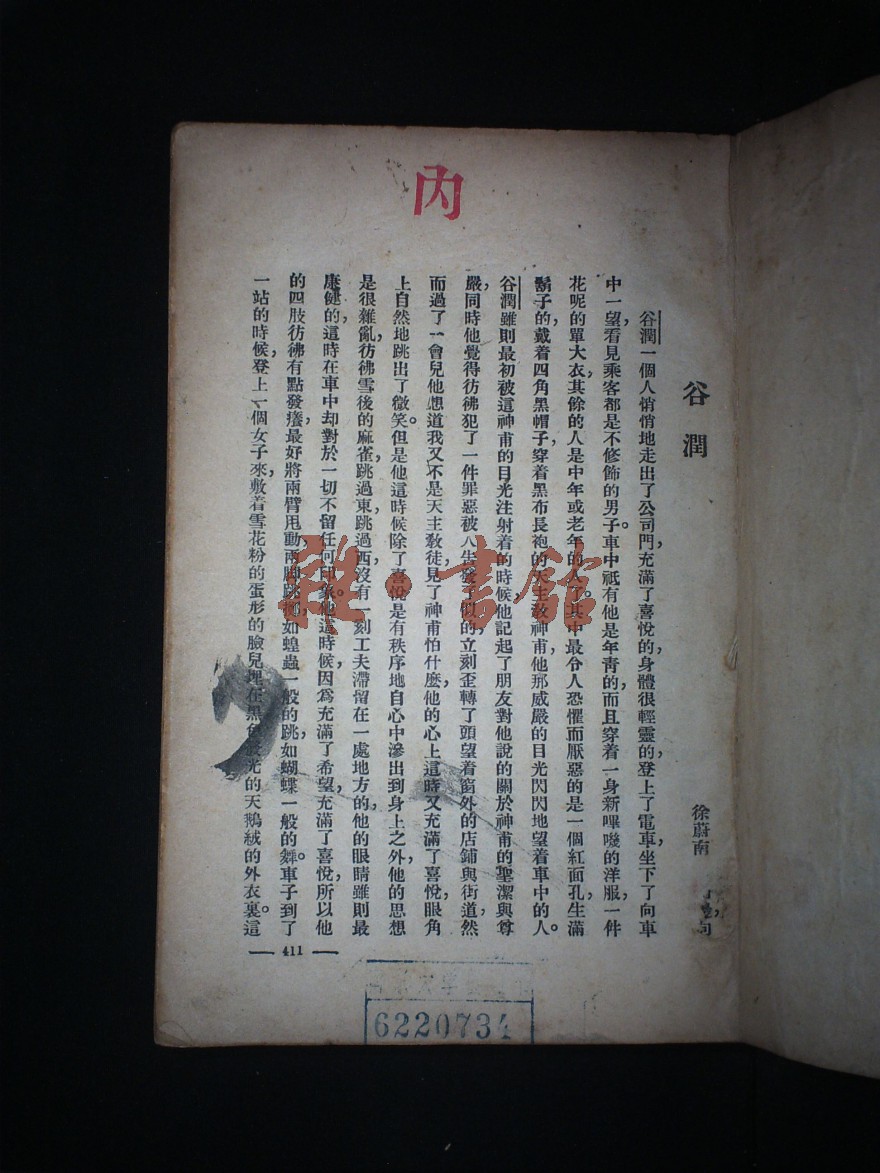 內
谷潤
徐蔚南
谷潤一個人悄悄地走出了公司門,充滿了喜悅的身體很輕靈的,登上了電車,坐下了,向車
中一望,看見乘客都是不修飾的男子。車中祗有他是年靑的,而且穿着一身新嗶嘰的洋服,一件
花呢的單大衣,其餘的人是中年或老年的人了。其中最令人恐懼而厭惡的是一個紅面孔,生滿
鬍子的,戴着四角黑帽子,穿着黑布長袍的天主敎神甫,他那威嚴的目光閃閃地望着車中的人。
谷潤雖則最初被這神甫的目光注射着的時候,他記起了朋友對他說的關於神甫的聖潔與尊
嚴,同時他覺得彷彿犯了一件罪惡被人告發了似的,立刻歪轉了頭望着窗外的店鋪與街道,然
而過了一會兒,他想道我又不是天主敎徒,見了神甫怕什麽,他的心上這時又充滿了喜悅,眼角
上自然地跳出了微笑。但是他這時候除了喜悅是有秩序地自心中滲出到身上之外,他的思想
是很雜亂,彷彿雪後的麻雀,跳過東,跳過西,沒有一刻工夫滯留在一處地方的,他的眼睛雖則最
康健的,這時在車中却對於一切不留任何印象。他這時候,因爲充滿了希望,充滿了喜悅,所以他
的四肢彷彿有點發癢,最好將兩臂甩動,兩脚跳擲,如蝗蟲一般的跳,如蝴蝶一般的舞。車子到了
一站的時候,登上一個女子來,敷着雪花粉的蛋形的臉兒,埋在黑色發光的天鵝絨的外衣裏。這
411
6220734
雜·書館